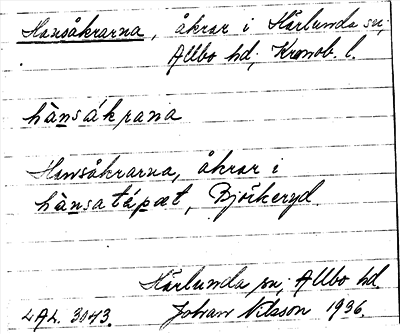 Hansåkrarna, åkrar i Härlunda sn,
Allbo hd, Kronob. l.
hànsákrana
Hansåkrarna, åkrar i
hànsatápæt, Björkeryd.
Härlunda sn, Allbo hd.
LAL. 3043. Johan Nilsson 1936.